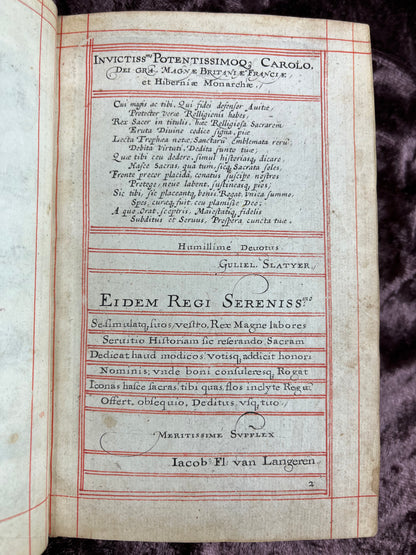 INVICTISS.mo POTENTISSIMOQ3 CAROLO,
DEI GRÃ. MAGNÆ BRITANIÆ FRANCIÆ,
et Hiberniæ Monarchæ.
Cui magis ac tibi, Qui fidei defensor Avitæ,
Protector veræ Relligionis habes,
Rex Sacer in titulis, hæc Religiosa Sacrarem
Eruta Divine codice signa, piæ
Lecta Trophea notæ, Sanctarū Emblemata rerū,
Debita Virtuti, Dedita sunto tuæ;
Quæ tibi ceu dedere, simul historiasq, dicare,
Nasce Sacras, quā tum, sicq Sacrata soles,
Fronte precor placidâ, conatus suscipe nostros
Protege, neue labent, sustineasq, pios;
Sic tibi, sic placeantq, bonis, Rogat, vnica summo.
Spes, curæq, fuit, ceu plamisse Deo;
A quo Orat, sceptris, Maiestatiq, fidelis
Subditus et Seruus, Prospera cuncta tuæ.
Humillime Devotus
GULIEL. SLATYER.
EIDEM REGI SERENISS.mo
Se simulatq, suos, vestro, Rex Magne labores
Servitio Historiam sic referando, Sacram
Dedicat haud modicos, Votisq, addicit honori
Nominis, vnde boni consuleresq, Rogat
Iconas hasce sacras, tibi quas, flos inclyte Regū
Offert, obsequio, Deditus vsq, tuo,
MERITISSIME SVPPLEX
Iacob. Fl. van Langeren.
2